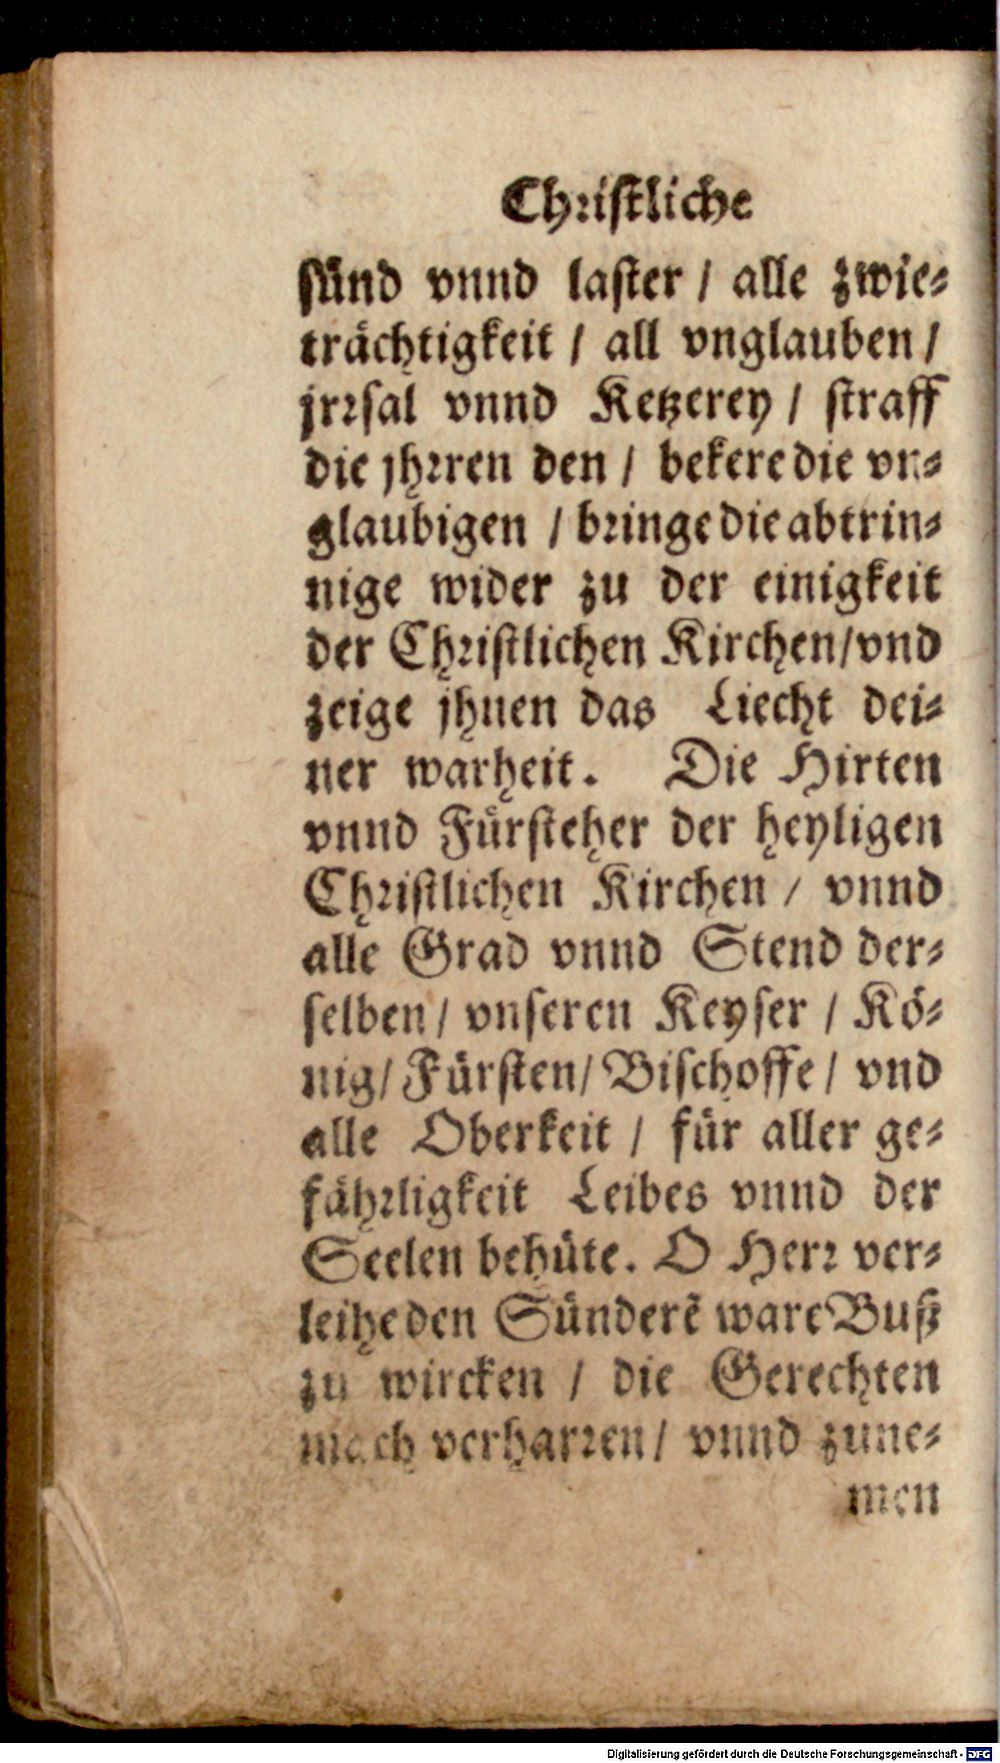 Christliche
sünd vnnd laster / alle zwie-
trächtigkeit / all vnglauben /
jrrsal vnnd Ketzerey / straff
die jhrren den / bekere die vn-
glaubigen / bringe die abtrin-
nige wider zu der einigkeit
der Christlichen Kirchen / vnd
zeige jhnen das Liecht dei-
ner warheit. Die Hirten
vnnd Fürsteher der heyligen
Christlichen Kirchen / vnnd
alle Grad vnnd Stend der-
selben / vnseren Keyser / Kö-
nig / Fürsten / Bischoffe / vnd
alle Oberkeit / für aller ge-
fährligkeit Leibes vnnd der
Seelen behüte. O Herr ver-
leihe den Sünderẽ ware Buß
zu wircken / die Gerechten
mach verharren / vnnd zune-
men
Digitalisierung gefördert durch die Deutsche Forschungsgemeinschaft - DFG